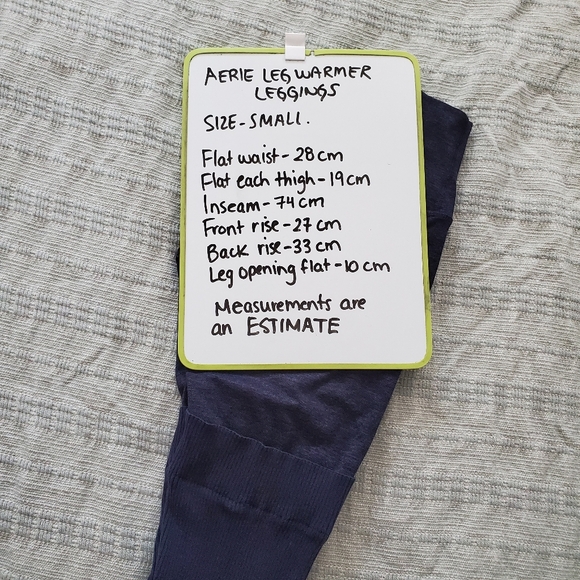 AERIE LEG WARMER
LEGGINGS
SIZE - SMALL.
Flat waist - 28 cm
Flat each thigh - 19 cm
Inseam - 74 cm
Front rise - 27 cm
Back rise - 33 cm
Leg opening flat - 10 cm
Measurements are
an ESTIMATE